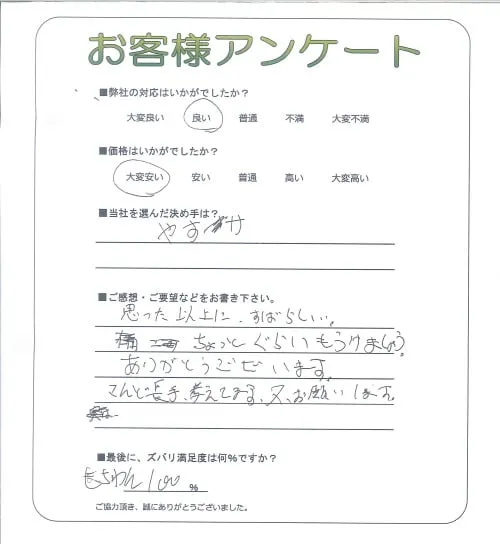 お客様アンケート
■弊社の対応はいかがでしたか？
大変良い 良い 普通 不満 大変不満
■価格はいかがでしたか？
大変安い 安い 普通 高い 大変高い
■当社を選んだ決め手は？
やす
■ご感想・ご要望などをお書き下さい。
思った以上に、すばらしい。
ちょっとぐらいもうけましょう。
ありがとうございます。
考えてます、又、お願いします。
■最後に、ズバリ満足度は何％ですか？
100 ％
ご協力頂き、誠にありがとうございました。